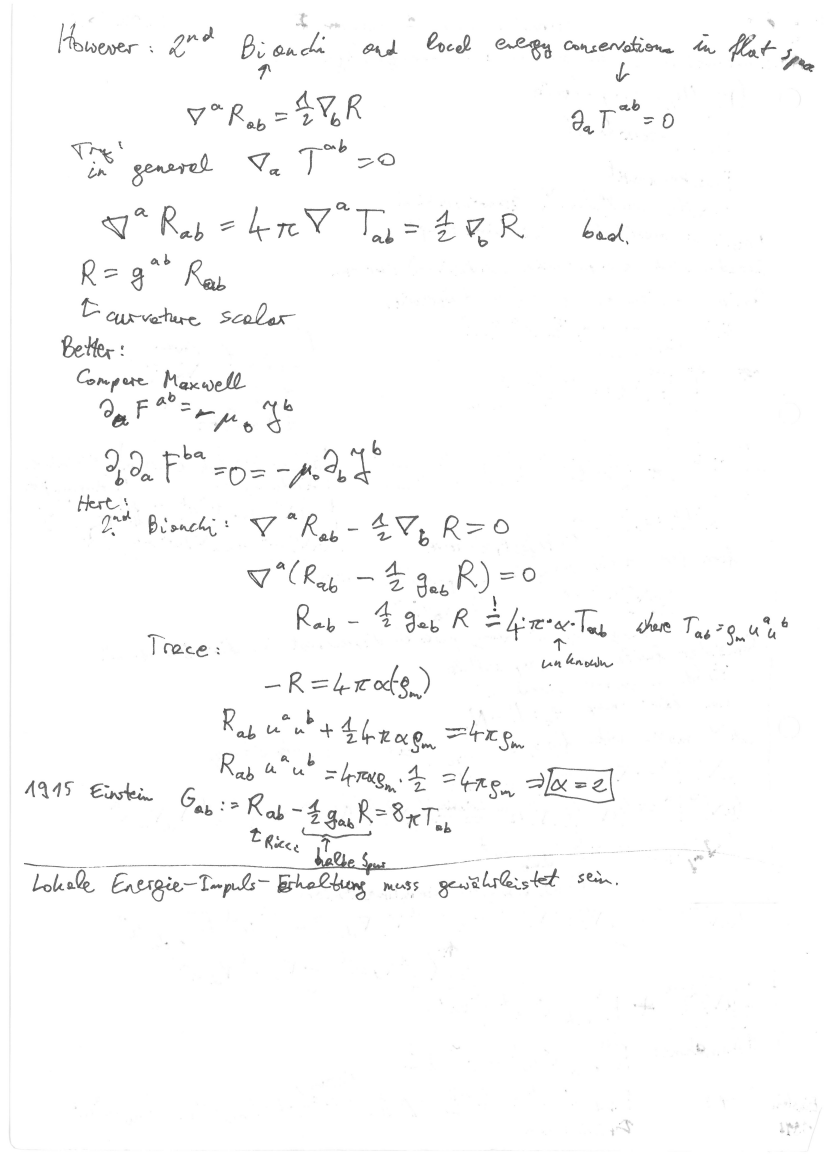 However: 2nd Bianchi and local energy conservation in flat space
↑ ↓
∇^a R_ab = 1/2 ∇_b R ∂_a T^ab = 0
Try:
in general ∇_a T^ab = 0
∇^a R_ab = 4π ∇^a T_ab = 1/2 ∇_b R bad.
R = g^ab R_ab
↑ curvature scalar
Better:
Compare Maxwell
∂_a F^ab = -μ_0 J^b
∂_b ∂_a F^ba = 0 = -μ_0 ∂_b J^b
Here:
2nd Bianchi: ∇^a R_ab - 1/2 ∇_b R = 0
∇^a (R_ab - 1/2 g_ab R) = 0
R_ab - 1/2 g_ab R =! 4·π·α·T_ab where T_ab = ρ_m u^a u^b
↑
unknown
Trace:
-R = 4πα(-ρ_m)
R_ab u^a u^b + 1/2 4παρ_m = 4πρ_m
R_ab u^a u^b = 4παρ_m · 1/2 = 4πρ_m ⇒ α = 2
1915 Einstein G_ab := R_ab - 1/2 g_ab R = 8πT_ab
↑ Ricci ↑
halbe Spur
Lokale Energie-Impuls-Erhaltung muss gewährleistet sein.